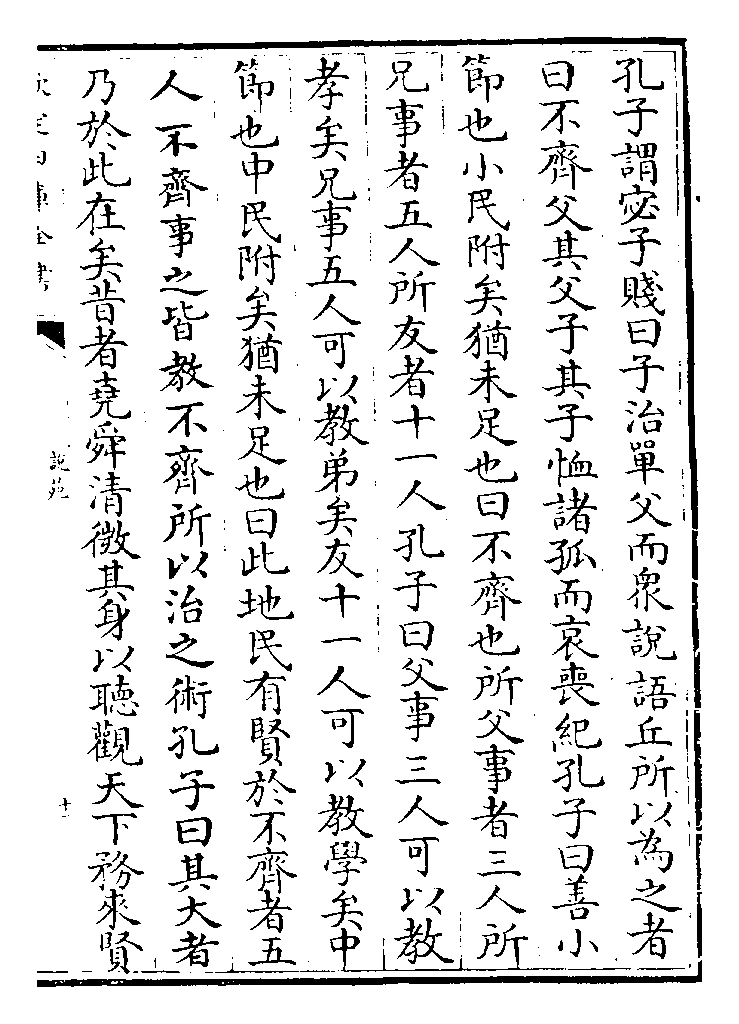 孔子謂宓子賤曰子治單父而衆說語丘所以為之者
曰不齊父其父子其子恤諸孤而哀喪紀孔子曰善小
節也小民附矣猶未足也曰不齊也所父事者三人所
兄事者五人所友者十一人孔子曰父事三人可以教
孝矣兄事五人可以教弟矣友十一人可以教學矣中
節也中民附矣猶未足也曰此地民有賢於不齊者五
人不齊事之皆教不齊所以治之術孔子曰其大者
乃於此在矣昔者堯舜清微其身以聽觀天下務來賢
欽定四庫全書
說苑
十一